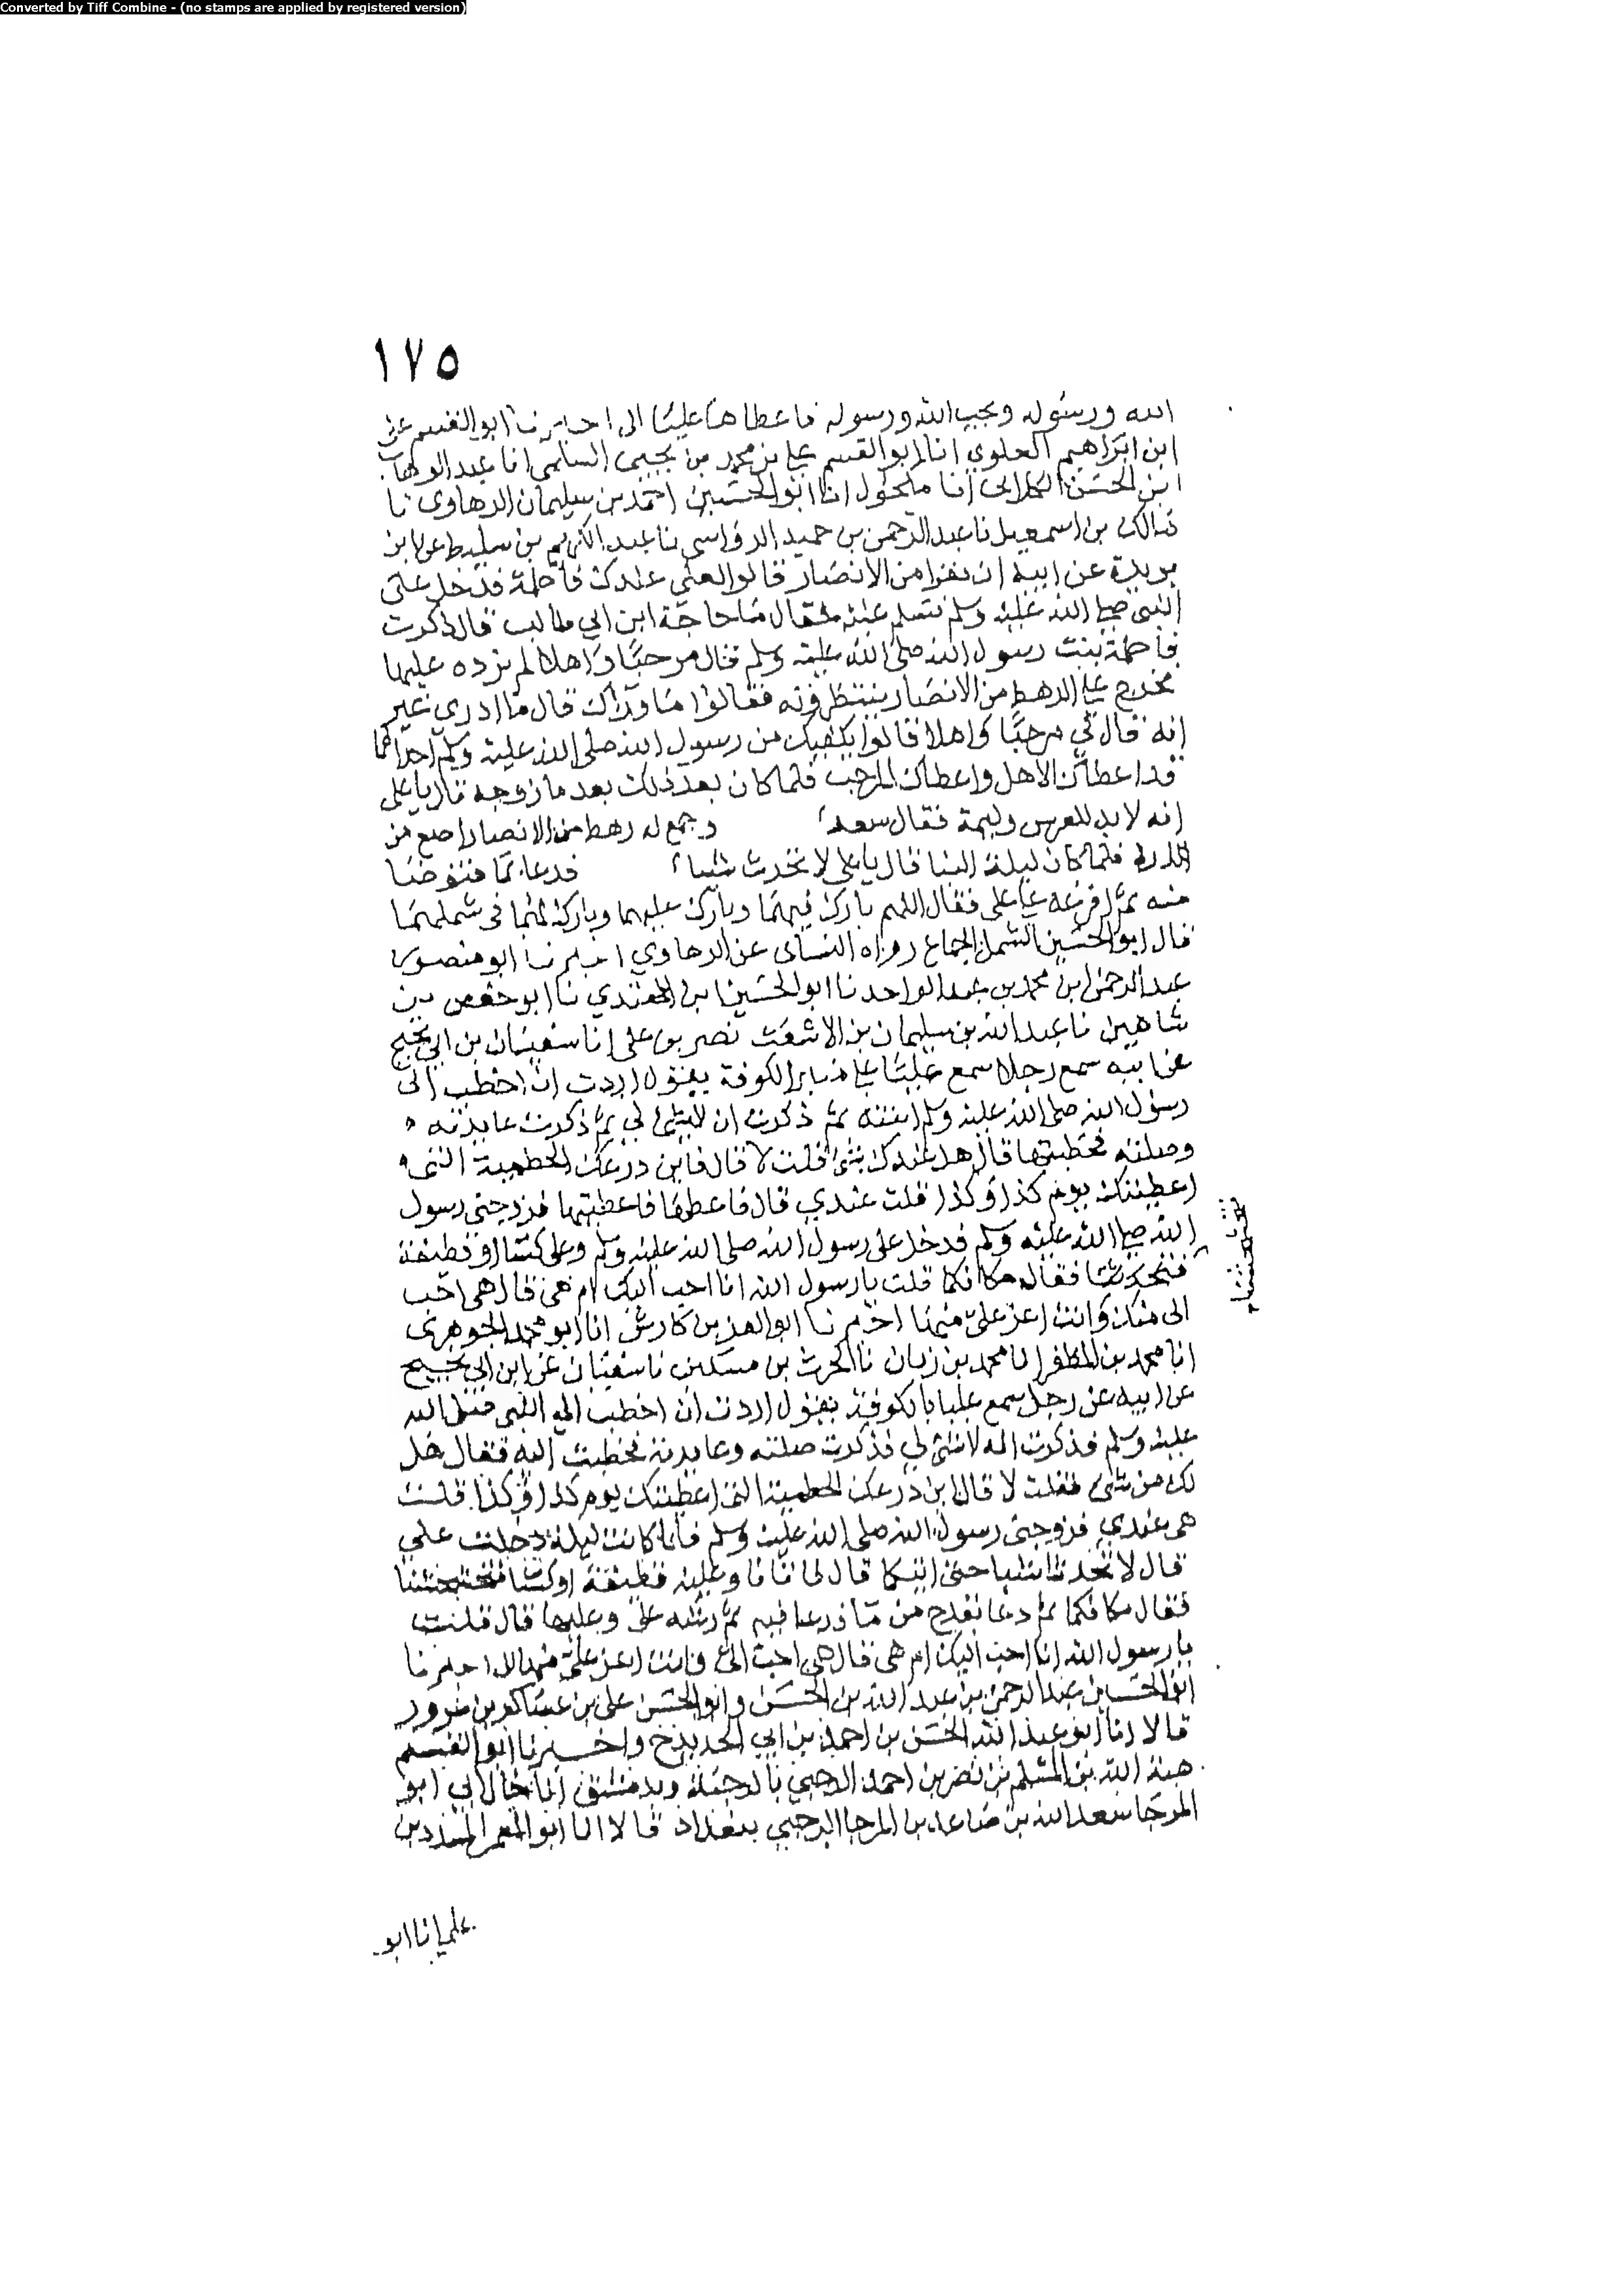 Converted by Tiff Combine - (no stamps are applied by registered version)
١٧٥
الله ورسوله ويحب الله ورسوله فاعطاها عليا الى اخبرنا ابو القسم على
ابن ابراهيم العلوي انا ابو القسم علي بن محمد بن يحيى السلمى انا عبد الوهاب
ابن الحسن الكلابى انا مكحول انا ابو الحسين احمد بن سليمان الرهاوى نا
مالك بن اسمعيل نا عبد الرحمن بن حميد الرؤاسى نا عبد الكريم بن سليط عن ابن
بريدة عن ابيه ان نفرا من الانصار قالوا لعلى عندك فاطمة فدخل على
النبى صلى الله عليه وسلم فسلم عليه فقال ما حاجة ابن ابي طالب قال ذكرت
فاطمة بنت رسول الله صلى الله عليه وسلم فقال مرحبا واهلا لم يزده عليها
فخرج على الرهط من الانصار ينتظرونه فقالوا ما وراك قال ما ادري غير
انه قال لي مرحبا واهلا قالوا يكفيك من رسول الله صلى الله عليه وسلم احداهما
قد اعطاك الاهل واعطاك المرحب فلما كان بعد ذلك بعد ما زوجه قال يا على
انه لابد للعرس وليمة فقال سعد وجمع له رهط من الانصار اصع من
الذرة فلما كان ليلة البنا قال يا على لا تحدث شيئا فدعا بما فتوضا
منه ثم افرغه على على فقال اللهم بارك فيهما وبارك عليهما وبارك لهما فى شملهما
قال ابو الحسين الشمل الجماع رواه النسائى عن الرهاوي اخبرنا ابو منصور
عبد الرحمن بن محمد بن عبد الواحد نا ابو الحسين بن المهتدي نا ابو حفص بن
شاهين نا عبد الله بن سليمان بن الاشعث نصر بن على انا سفيان بن ابي نجيح
عن ابيه سمع رجلا سمع عليا على منابر الكوفة يقول اردت ان اخطب الى
رسول الله صلى الله عليه وسلم ابنته ثم ذكرت ان لا شئ لي ثم ذكرت عايدته
وصلته فخطبتها قال هل عندك شئ قلت لا قال فاين درعك الحطمية التى
اعطيتك يوم كذا وكذا قلت عندي قال فاعطها فاعطيتها فزوجنى رسول
الله صلى الله عليه وسلم فدخل على رسول الله صلى الله عليه وسلم وعلى كسا او قطيفة
فتحركنا فقال مكانكما قلت يا رسول الله انا احب اليك ام هى قال هى احب
الى منك وانت اعز على منها اخبرنا ابو العز بن كادش انا ابو محمد الجوهرى
انا محمد بن المظفر انا محمد بن زبان نا الحرث بن مسكين نا سفيان عن ابن ابي نجيح
عن ابيه عن رجل سمع عليا بالكوفة يقول اردت ان اخطب الى النبي صلى الله
عليه وسلم فذكرت انه لا شئ لي فذكرت صلته وعايدته فخطبت اليه فقال هل
لك من شئ فقلت لا قال اين درعك الحطمية التى اعطيتك يوم كذا وكذا قلت
هى عندي فزوجنى رسول الله صلى الله عليه وسلم فلما كانت ليلة دخلت علي
قال لا تحدثا شيا حتى اتيكما قال فاتانا وعليه قطيفة او كسا
فقال مكانكما ثم دعا بقدح من ما فدعا فيه ثم رشه على وعليها قال قلت
يا رسول الله انا احب اليك ام هى قال هى احب الى وانت اعز على منها اخبرنا
ابو الحسين عبد الرحمن بن عبد الله بن الحسن وابو الحسن على بن عساكر بن سرور
قالا انا ابو عبد الله الحسن بن احمد بن ابي الحديد ح واخبرنا ابو القسم
هبة الله بن المسلم بن نصر بن احمد الرحبي بالرحبة وبدمشق انا خال ابي ابو
المرجا سعد الله بن صاعد بن المرجا الرحبي ببغداد قالا انا ابو المعمر المسدد بن
على انا ابو